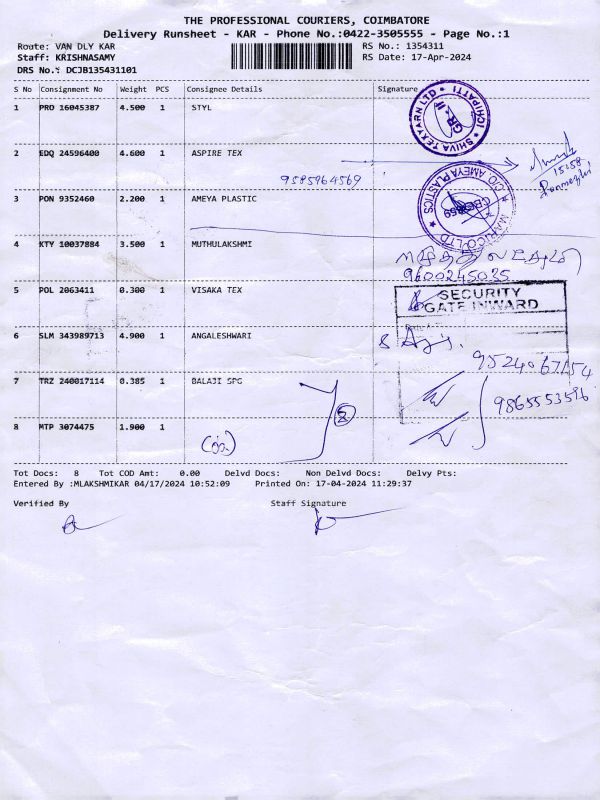 THE PROFESSIONAL COURIERS, COIMBATORE
Delivery Runsheet - KAR - Phone No.:0422-3505555 - Page No.:1
Route: VAN DLY KAR
RS No.: 1354311
Staff: KRISHNASAMY
RS Date: 17-Apr-2024
DRS No.: DCJB135431101
S No Consignment No Weight PCS Consignee Details Signature
1 PRO 16045387 4.500 1 STYL
SHIVA TEXYARN LTD (ICHIPATTI)
2 EDQ 24596400 4.600 1 ASPIRE TEX
9585964569
3 PON 9352460 2.200 1 AMEYA PLASTIC
C/O AMEYA PLASTICS
MARICO LTD
4 KTY 10037884 3.500 1 MUTHULAKSHMI
9600245035
5 POL 2063411 0.300 1 VISAKA TEX
SECURITY
GATE INWARD
6 SLM 343989713 4.900 1 ANGALESHWARI
9524067154
7 TRZ 240017114 0.385 1 BALAJI SPG
9865553596
8 MTP 3074475 1.900 1
Tot Docs: 8 Tot COD Amt: 0.00 Delvd Docs: Non Delvd Docs: Delvy Pts:
Entered By :MLAKSHMIKAR 04/17/2024 10:52:09 Printed On: 17-04-2024 11:29:37
Verified By Staff Signature